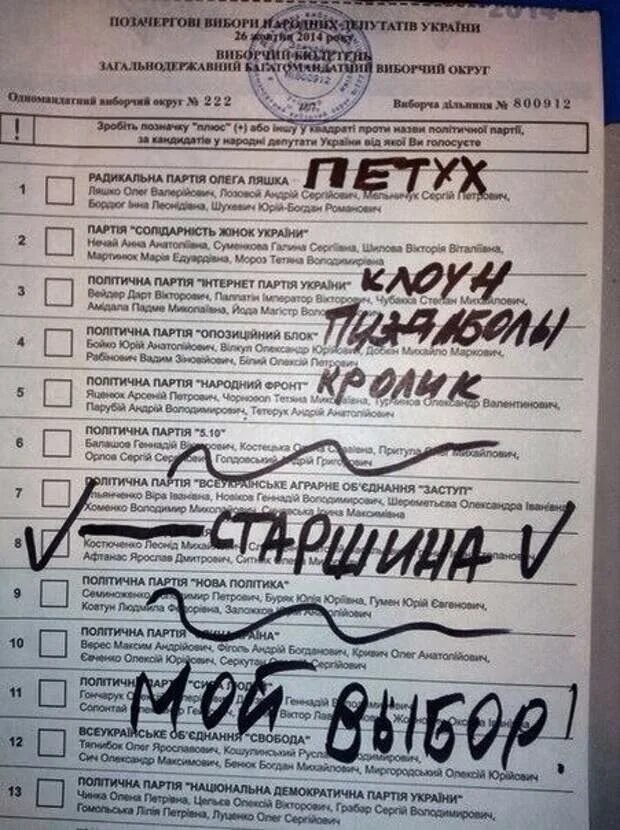 ПОЗАЧЕРГОВІ ВИБОРИ НАРОДНИХ ДЕПУТАТІВ УКРАЇНИ
26 жовтня 2014 року
ВИБОРЧИЙ БЮЛЕТЕНЬ
ЗАГАЛЬНОДЕРЖАВНИЙ БАГАТОМАНДАТНИЙ ВИБОРЧИЙ ОКРУГ
Одномандатний виборчий округ № 222 Виборча дільниця № 800912
! Зробіть позначку "плюс" (+) або іншу у квадраті проти назви політичної партії,
за кандидатів у народні депутати України від якої Ви голосуєте
1 РАДИКАЛЬНА ПАРТІЯ ОЛЕГА ЛЯШКА ПЕТУХ
Ляшко Олег Валерійович, Лозовой Андрій Сергійович, Мельничук Сергій Петрович,
Бордюг Інна Леонідівна, Шухевич Юрій-Богдан Романович
2 ПАРТІЯ "СОЛІДАРНІСТЬ ЖІНОК УКРАЇНИ"
Нечай Анна Анатоліївна, Суменкова Галина Сергіївна, Шилова Вікторія Віталіївна,
Мартинюк Марія Едуардівна, Мороз Тетяна Володимирівна
3 ПОЛІТИЧНА ПАРТІЯ "ІНТЕРНЕТ ПАРТІЯ УКРАЇНИ" КЛОУН
Вейдер Дарт Вікторович, Палпатін Імператор Вікторович, Чубакка Степан Михайлович,
Амідала Падме Миколаївна, Йода Магістр
4 ПОЛІТИЧНА ПАРТІЯ "ОПОЗИЦІЙНИЙ БЛОК" ПИЗДАБОЛЫ
Бойко Юрій Анатолійович, Вілкул Олександр Юрійович, Добкін Михайло Маркович,
Рабінович Вадим Зіновійович, Білий Олексій Петрович
5 ПОЛІТИЧНА ПАРТІЯ "НАРОДНИЙ ФРОНТ" КРОЛИК
Яценюк Арсеній Петрович, Чорновол Тетяна Миколаївна, Турчинов Олександр Валентинович,
Парубій Андрій Володимирович, Тетерук Андрій Анатолійович
6 ПОЛІТИЧНА ПАРТІЯ "5.10"
Балашов Геннадій Вікторович, Костецька Притула Михайлович,
Орлов Сергій Голдовський Андрій
7 ПОЛІТИЧНА ПАРТІЯ "ВСЕУКРАЇНСЬКЕ АГРАРНЕ ОБ'ЄДНАННЯ "ЗАСТУП"
Ульянченко Віра Іванівна, Новіков Геннадій Володимирович, Шереметьєва Олександра Іванівна,
Хоменко Володимир Ірина Максимівна
8 СТАРШИНА
Костюченко Леонід
Афтанас Ярослав Дмитрович,
9 ПОЛІТИЧНА ПАРТІЯ "НОВА ПОЛІТИКА"
Семиноженко Володимир Петрович, Буряк Юлія Юріївна, Гумен Юрій Євгенович,
Ковтун Людмила Федорівна,
10 ПОЛІТИЧНА ПАРТІЯ
Верес Максим Андрійович, Фіголь Андрій Богданович, Кривич Олег Анатолійович,
Євченко Олексій Юрійович, Сергійович
11 ПОЛІТИЧНА
Гончарук Геннадій
Віктор
МОЙ ВЫБОР!
12 ВСЕУКРАЇНСЬКЕ ОБ'ЄДНАННЯ "СВОБОДА"
Тягнибок Олег Ярославович, Кошулинський Руслан Володимирович,
Сич Олександр Максимович, Бенюк Богдан Михайлович, Миргородський Олексій Юрійович
13 ПОЛІТИЧНА ПАРТІЯ "НАЦІОНАЛЬНА ДЕМОКРАТИЧНА ПАРТІЯ УКРАЇНИ"
Чинка Олена Петрівна, Цельєв Олексій Вікторович, Грабар Сергій Володимирович,
Гомольська Лілія Петрівна, Луценко Олег Сергійович